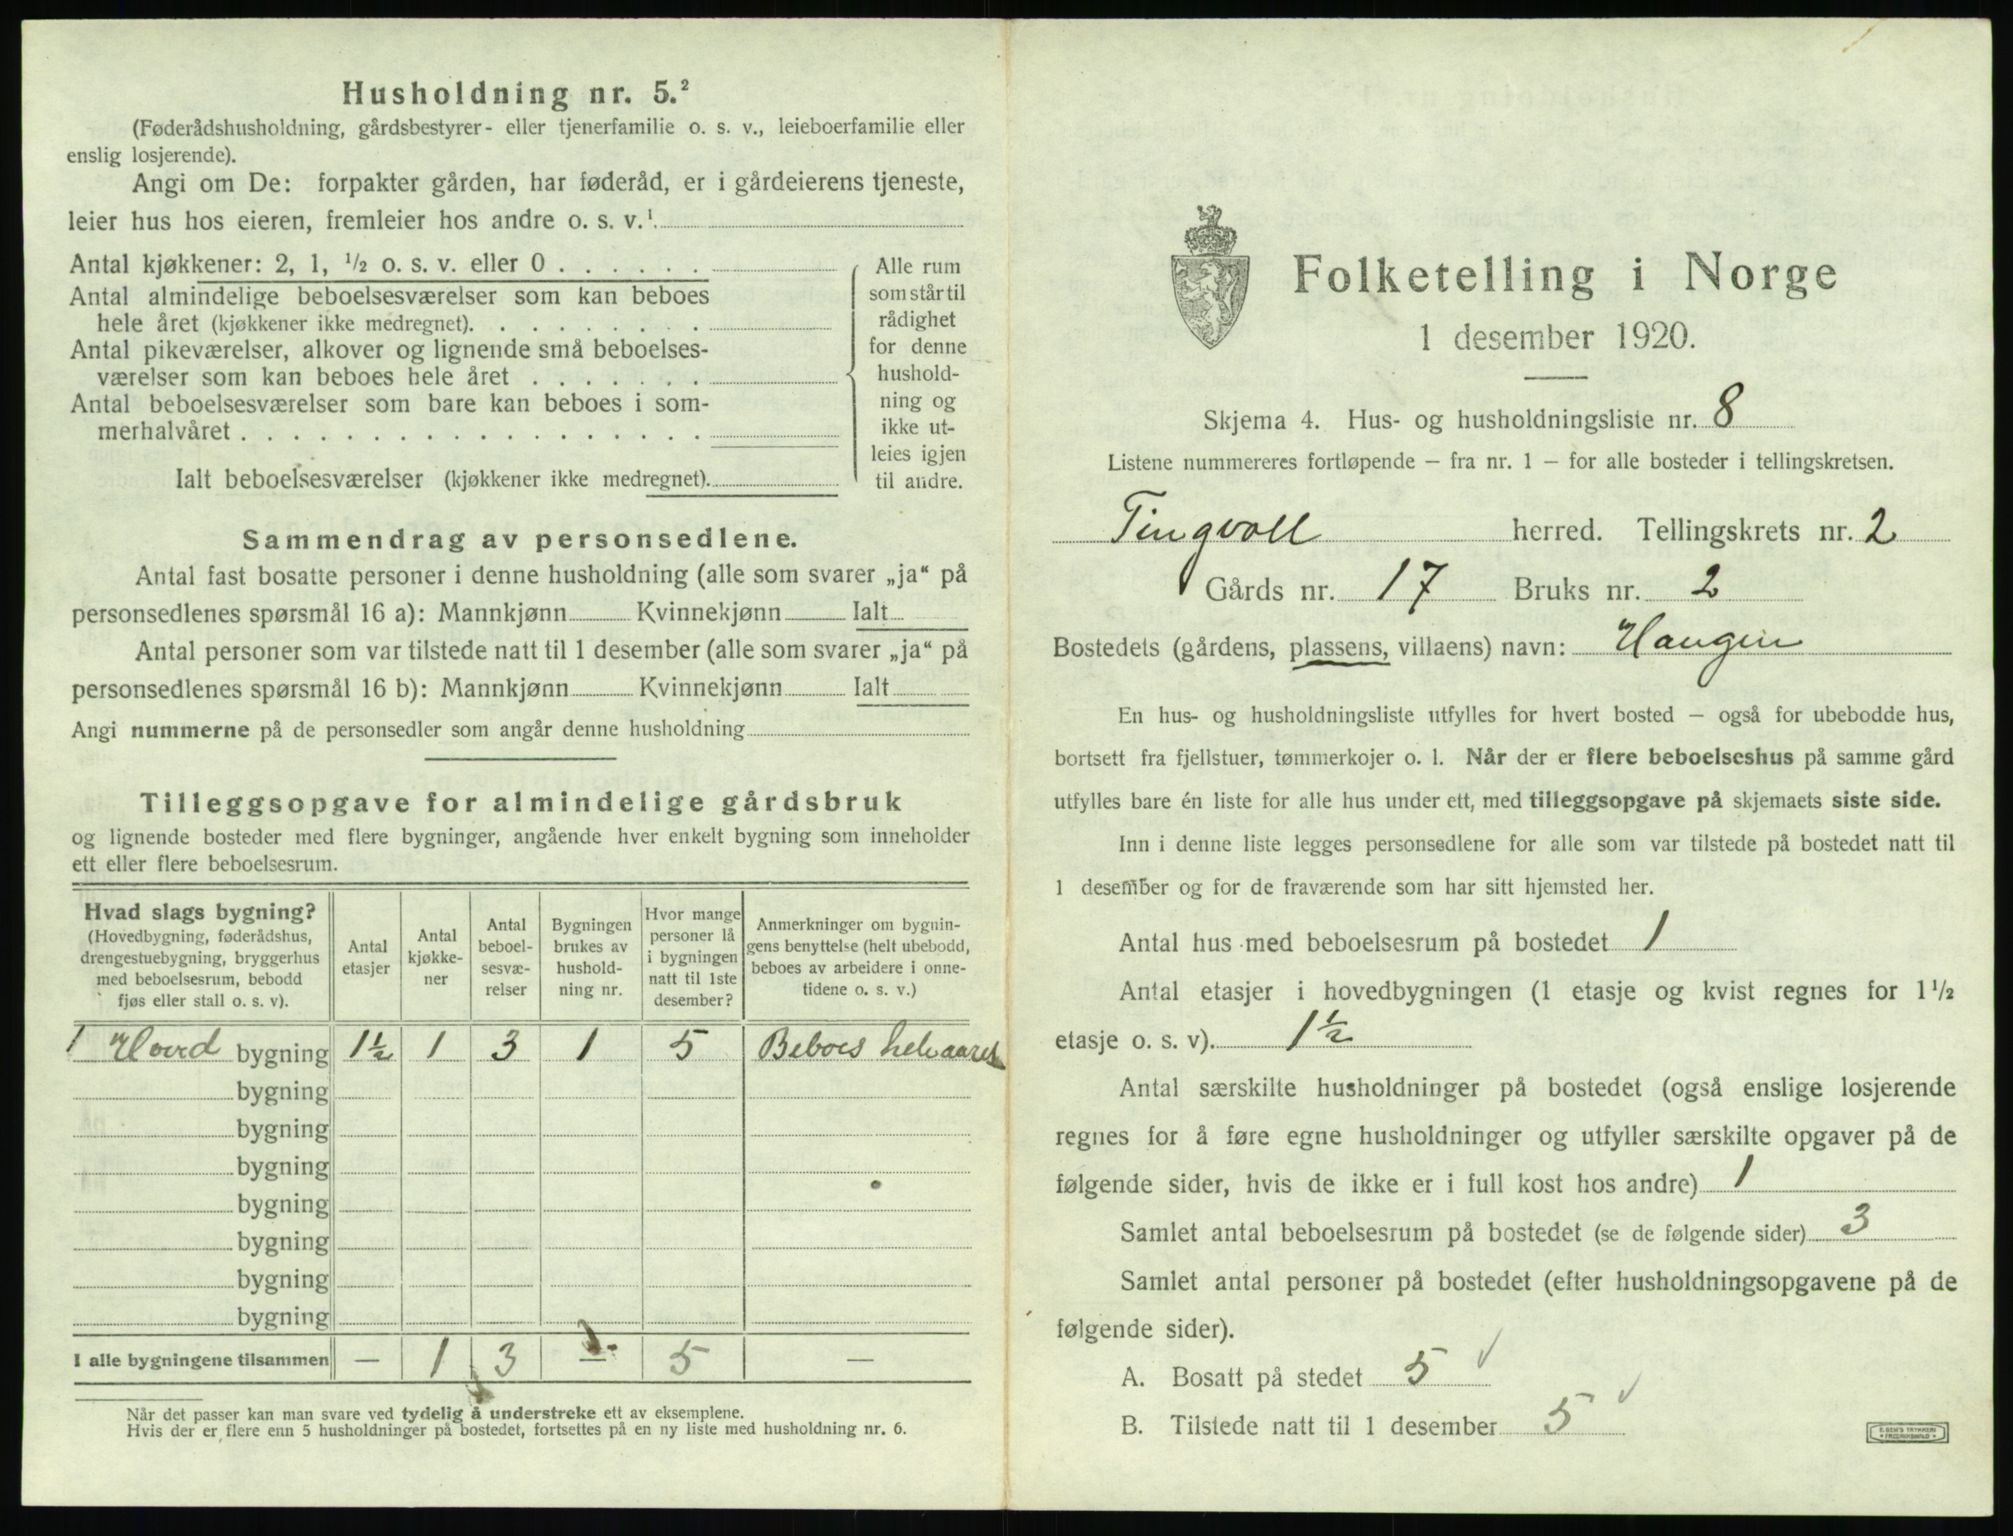 Husholdning nr. 5.²
(Føderådshusholdning, gårdsbestyrer- eller tjenerfamilie o. s. v., leieboerfamilie eller
enslig losjerende).
Angi om De: forpakter gården, har føderåd, er i gårdeierens tjeneste,
leier hus hos eieren, fremleier hos andre o. s. v.¹
Antal kjøkkener: 2, 1, ½ o. s. v. eller 0 . . . . . .
Antal almindelige beboelsesværelser som kan beboes
hele året (kjøkkener ikke medregnet). . . . . . . . .
Antal pikeværelser, alkover og lignende små beboelses-
værelser som kan beboes hele året . . . . . . .
Antal beboelsesværelser som bare kan beboes i som-
merhalvåret . . . . . . . . . . . . . . . . . .
Ialt beboelsesværelser (kjøkkener ikke medregnet).
Alle rum
som står til
rådighet
for denne
hushold-
ning og
ikke ut-
leies igjen
til andre.
Sammendrag av personsedlene.
Antal fast bosatte personer i denne husholdning (alle som svarer „ja“ på
personsedlenes spørsmål 16 a): Mannkjønn Kvinnekjønn Ialt
Antal personer som var tilstede natt til 1 desember (alle som svarer „ja“ på
personsedlenes spørsmål 16 b): Mannkjønn Kvinnekjønn Ialt
Angi nummerne på de personsedler som angår denne husholdning
Tilleggsopgave for almindelige gårdsbruk
og lignende bosteder med flere bygninger, angående hver enkelt bygning som inneholder
ett eller flere beboelsesrum.
Hvad slags bygning?
(Hovedbygning, føderådshus,
drengestuebygning, bryggerhus
med beboelsesrum, bebodd
fjøs eller stall o. s. v).
Antal
etasjer
Antal
kjøkke-
ner
Antal
beboel-
sesvæ-
relser
Bygningen
brukes av
hushold-
ning nr.
Hvor mange
personer lå
i bygningen
natt til 1ste
desember?
Anmerkninger om bygnin-
gens benyttelse (helt ubebodd,
beboes av arbeidere i onne-
tidene o. s. v.)
1 Hoved bygning 1½ 1 3 1 5 Beboes hele aaret
bygning
bygning
bygning
bygning
bygning
bygning
bygning
I alle bygningene tilsammen — 1 3 — 5 —
Når det passer kan man svare ved tydelig å understreke ett av eksemplene.
Hvis der er flere enn 5 husholdninger på bostedet, fortsettes på en ny liste med husholdning nr. 6.
Folketelling i Norge
1 desember 1920.
Skjema 4. Hus- og husholdningsliste nr. 8
Listene nummereres fortløpende – fra nr. 1 – for alle bosteder i tellingskretsen.
Tingvoll herred. Tellingskrets nr. 2
Gårds nr. 17 Bruks nr. 2
Bostedets (gårdens, plassens, villaens) navn: Haugen
En hus- og husholdningsliste utfylles for hvert bosted – også for ubebodde hus,
bortsett fra fjellstuer, tømmerkojer o. l. Når der er flere beboelseshus på samme gård
utfylles bare én liste for alle hus under ett, med tilleggsopgave på skjemaets siste side.
Inn i denne liste legges personsedlene for alle som var tilstede på bostedet natt til
1 desember og for de fraværende som har sitt hjemsted her.
Antal hus med beboelsesrum på bostedet 1
Antal etasjer i hovedbygningen (1 etasje og kvist regnes for 1½
etasje o. s. v). 1½
Antal særskilte husholdninger på bostedet (også enslige losjerende
regnes for å føre egne husholdninger og utfyller særskilte opgaver på de
følgende sider, hvis de ikke er i full kost hos andre) 1
Samlet antal beboelsesrum på bostedet (se de følgende sider) 3
Samlet antal personer på bostedet (efter husholdningsopgavene på de
følgende sider).
A. Bosatt på stedet 5 ✓
B. Tilstede natt til 1 desember 5 ✓